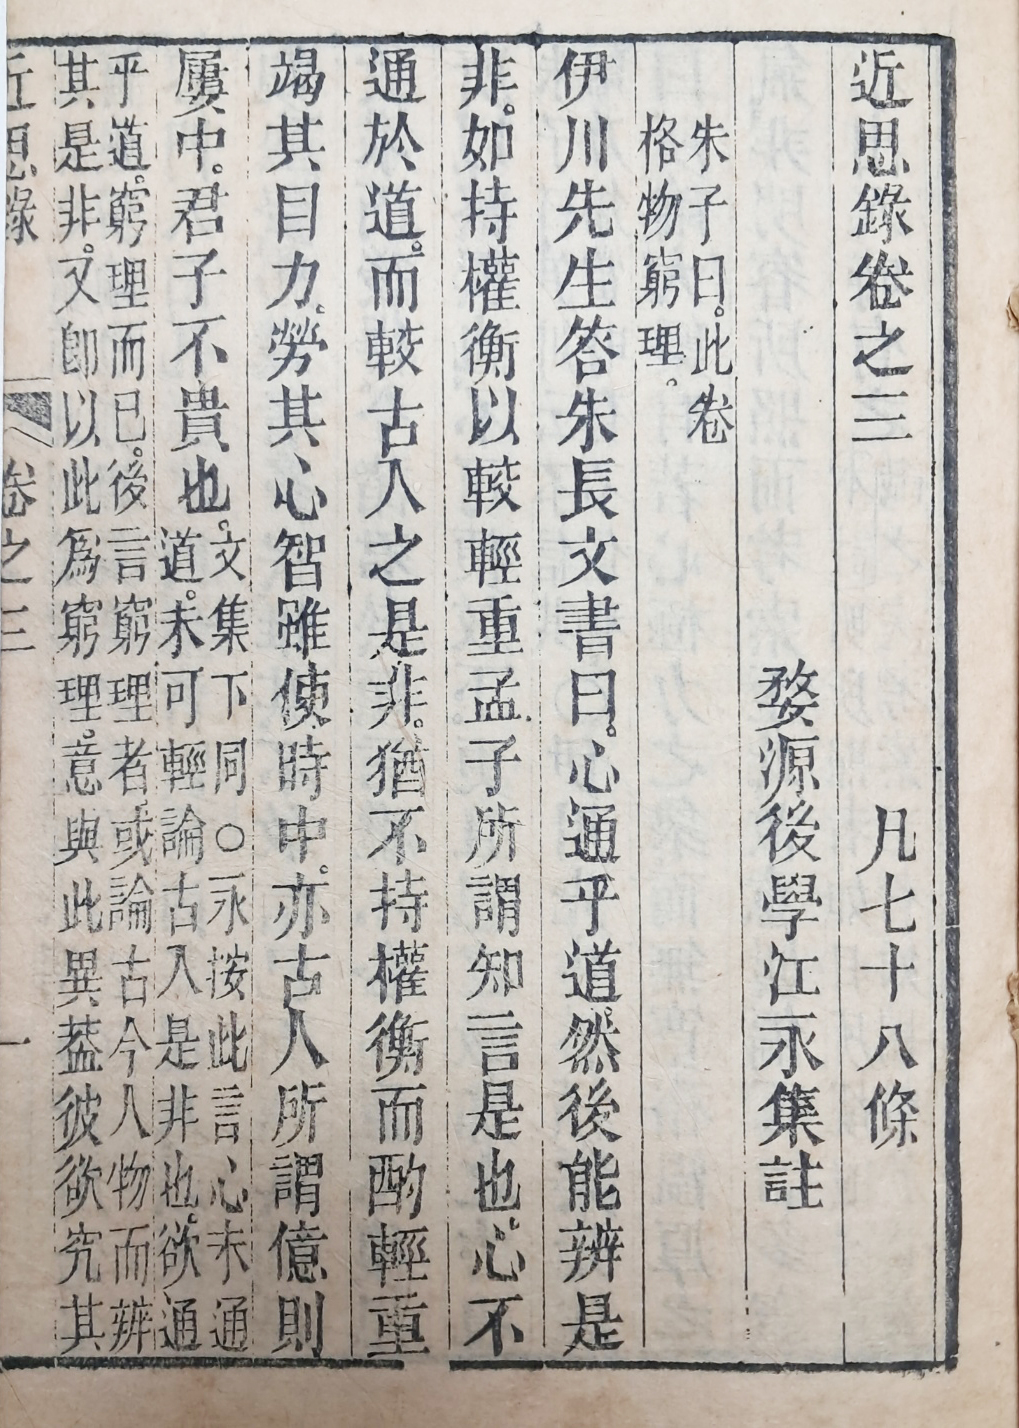 近思錄卷之三　凡七十八條
婺源後學江永集註
朱子曰。此卷
格物窮理。
伊川先生答朱長文書曰。心通乎道。然後能辨是
非。如持權衡以較輕重孟子所謂知言是也。心不
通於道。而較古人之是非。猶不持權衡而酌輕重
竭其目力。勞其心智雖使時中。亦古人所謂億則
屢中。君子不貴也。
文集下同○永按此言心未通
道。未可輕論古人是非也。欲通
乎道。窮理而已。後言窮理者或論古今人物而辨
其是非。又卽以此爲窮理。意與此異葢彼欲究其
近思錄　卷之三　一